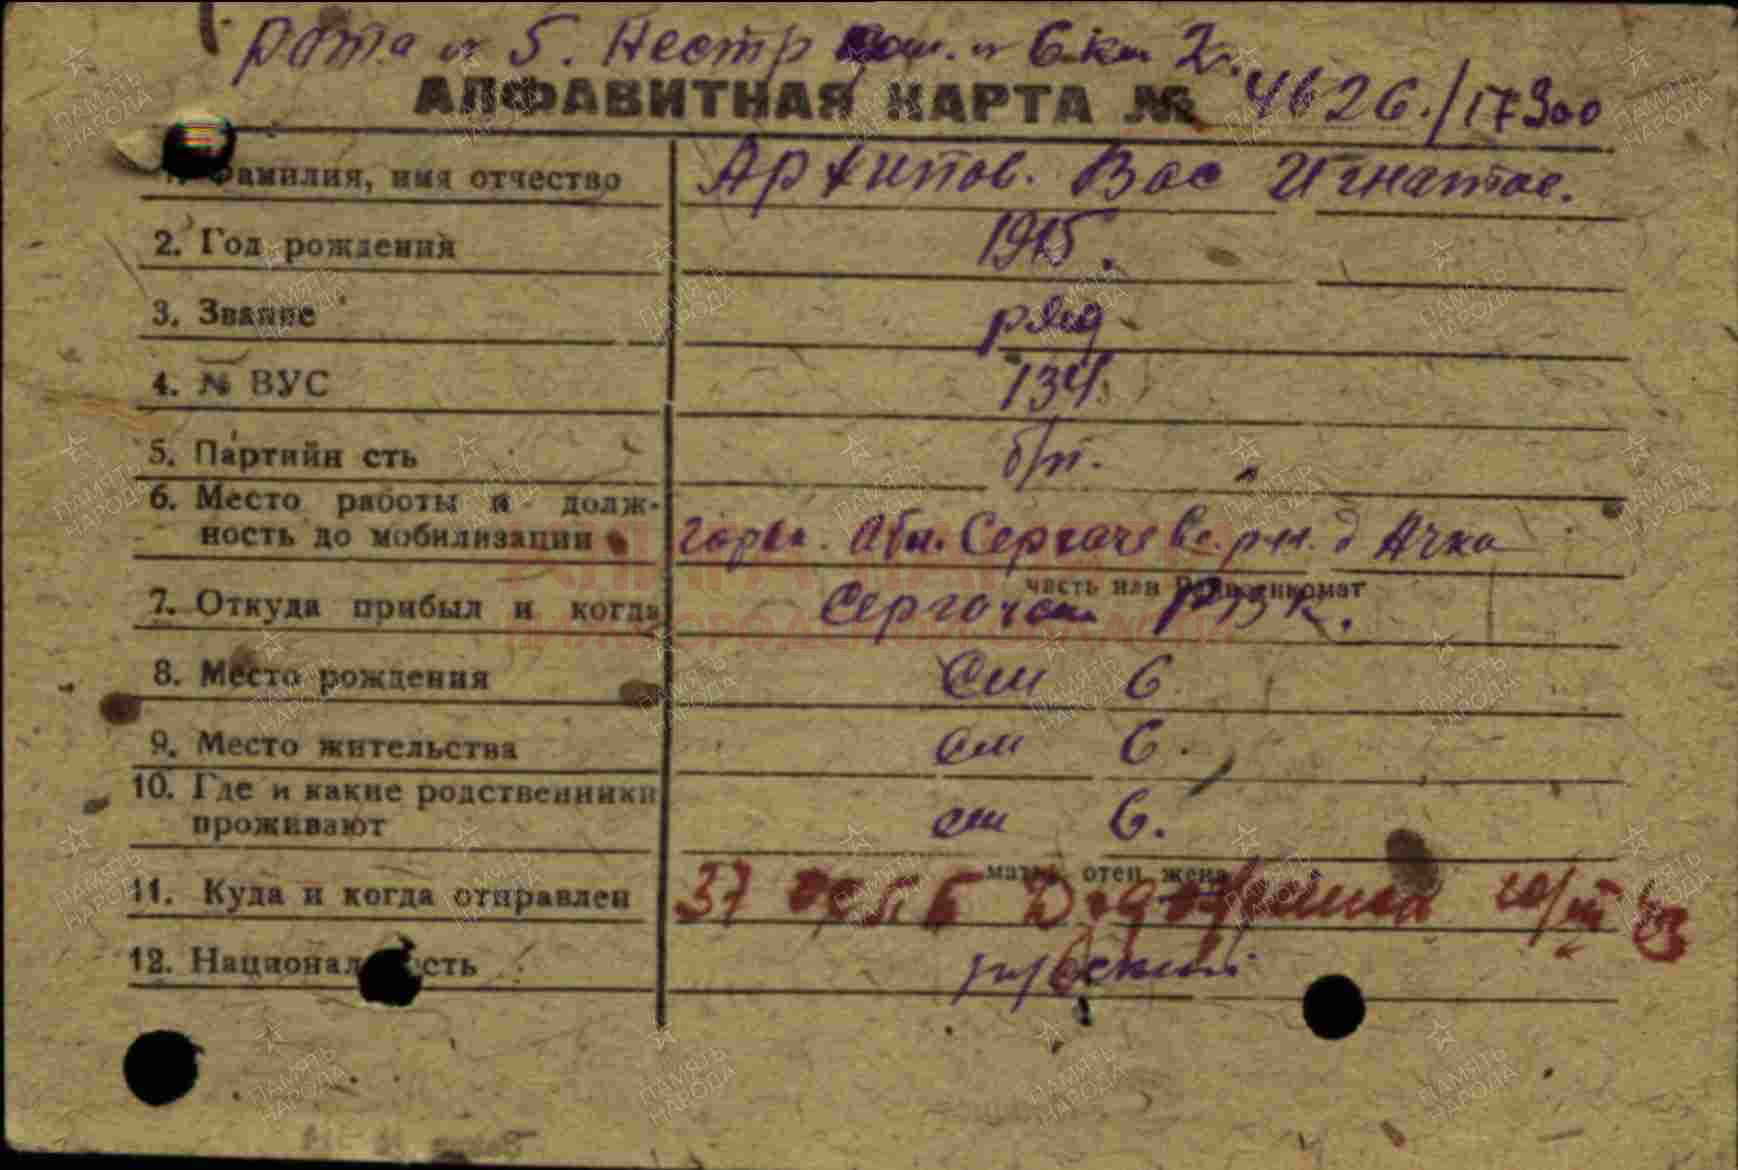 рота 5. Нестр
АЛФАВИТНАЯ КАРТА № 4626./17300
1. Фамилия, имя отчество Архипов. Вас Игнатов.
2. Год рождения 1915.
3. Звание ряд
4. № ВУС 134.
5. Партийн сть б/п.
6. Место работы и долж-
ность до мобилизации горьк. обл. Сергачевс. р-н. д Ачка
часть или Райвоенкомат
7. Откуда прибыл и когда Сергачским РВК.
8. Место рождения см 6
9. Место жительства см 6.
10. Где и какие родственники
проживают см 6.
мать, отец жена
11. Куда и когда отправлен 37 10/III 43
12. Националь сть русский
КНИГА ПАМЯТИ
НИЖЕГОРОДСКОЙ ОБЛАСТИ
ПАМЯТЬ НАРОДА